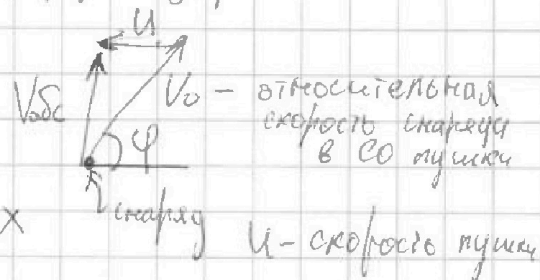 U
Vабс
V₀ - относительная
скорость снаряда
в СО пушки
φ
снаряд
X
U - скорость пушки